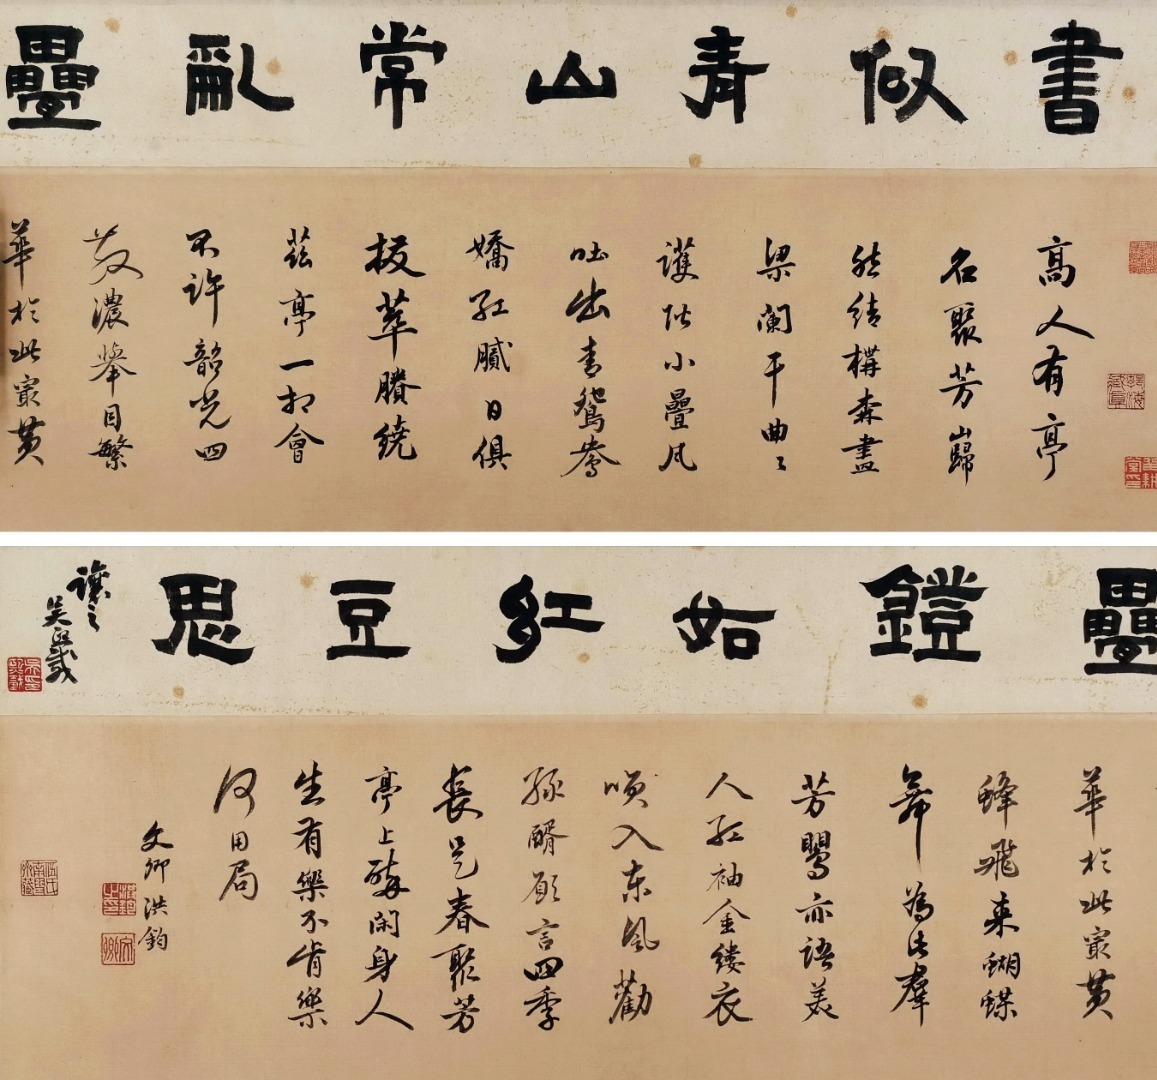 書似青山常亂疊
高人有亭
名聚芳巋
然結構森畫
梁闌干曲〻
護階小疊瓦
吐出青鴛鴦
嬌紅膩日俱
拔萃賸繞
茲亭一相會
不許韶光四
散濃舉目繁
華於此最黃
疊鐙如紅豆思
讓之吳熙載
華於此最黃
蜂飛來蝴蝶
舞為此群
芳鸎亦語美
人紅袖金縷衣
喚入東風勸
綠醑願言四季
長是春聚芳
亭上醉閑身人
生有樂不肯樂
何用局
文卿洪鈞